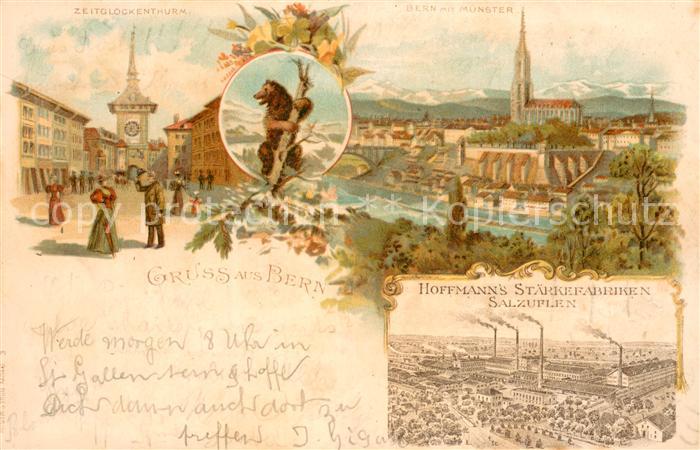 ZEITGLOCKENTHURM.
BERN MIT MÜNSTER
copy protection & kopie schutz
GRUSS AUS BERN
HOFFMANN'S STÄRKEFABRIKEN
SALZUFLEN
Werde morgen 8 Uhr in
St Gallen sein & hoffe
Dich dann auch dort zu
treffen J.